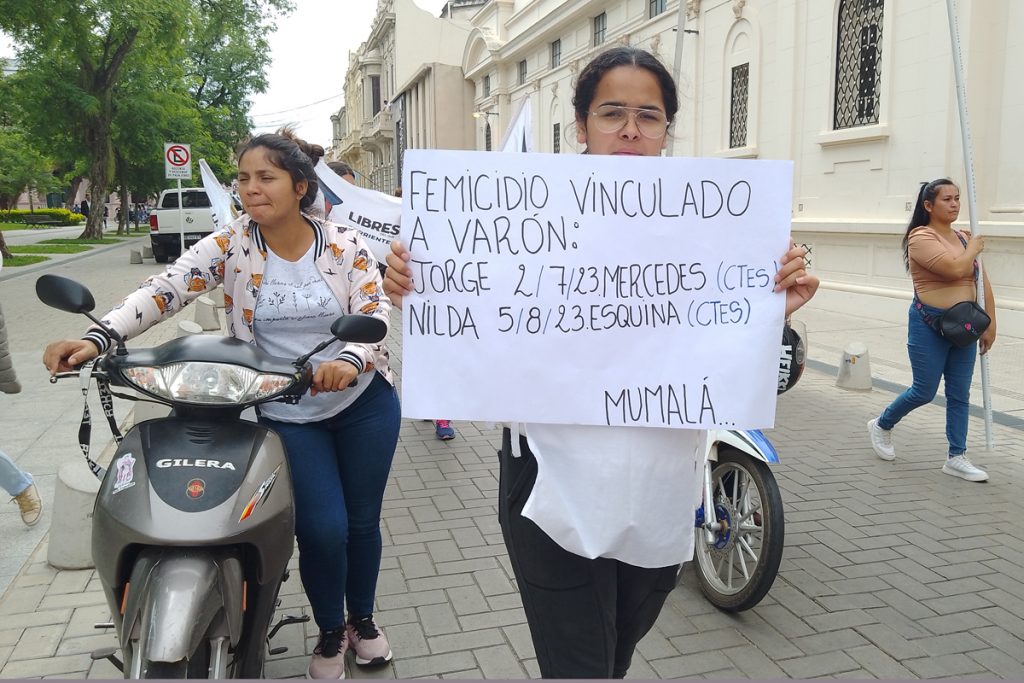 FEMICIDIO VINCULADO
A VARÓN:
JORGE 2/7/23.MERCEDES (CTES)
NILDA 5/8/23.ESQUINA (CTES)
MUMALÁ...
LIBRES
GILERA